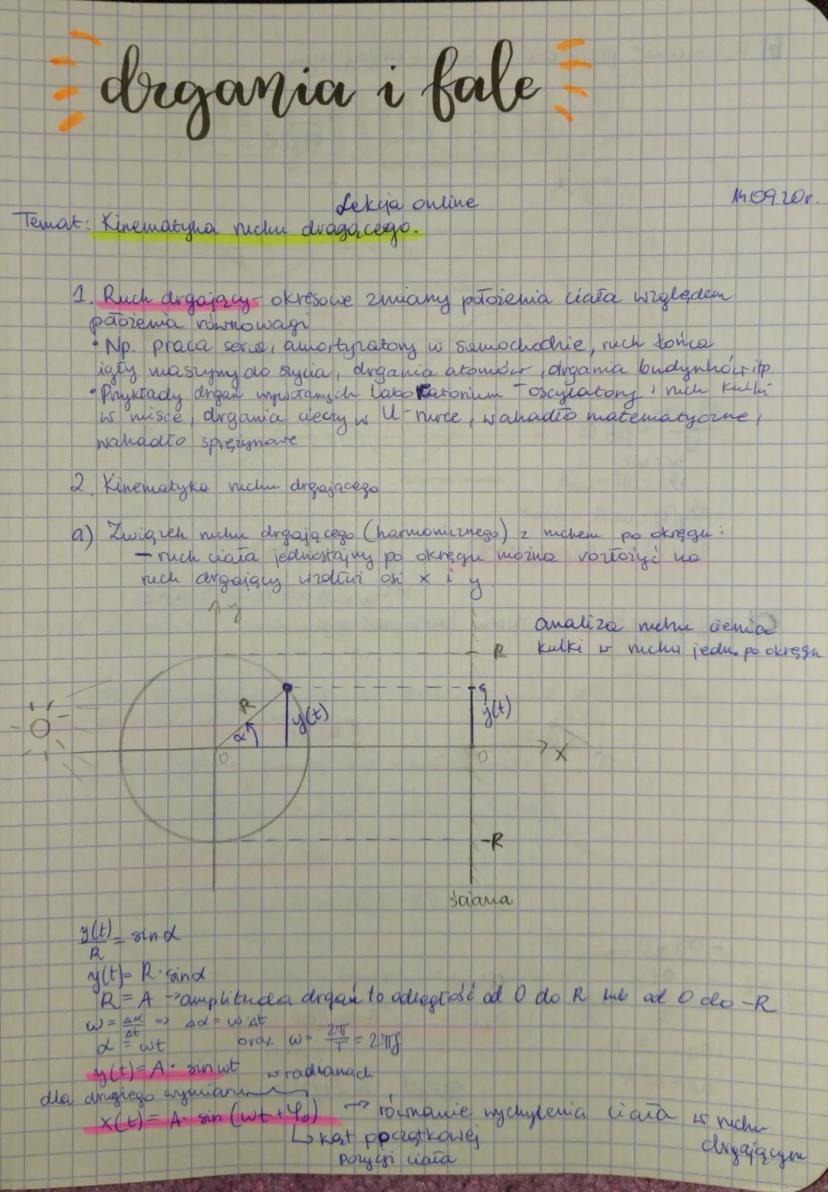 drgania i fale
Lekcja online
14.09.20r.
Temat: Kinematyka ruchu drgającego.
1. Ruch drgający - okresowe zmiany położenia ciała względem
położenia równowagi
• Np. praca serca, amortyzatory w samochodzie, ruch końca
igły maszyny do szycia, drgania atomów, drgania budynków itp.
• Przykłady drgań wywołanych laboratorium - oscylatory, ruch kulki
w misce, drgania cieczy w U-rurce, wahadło matematyczne,
wahadło sprężynowe
2. Kinematyka ruchu drgającego
a) Związek ruchu drgającego (harmonicznego) z ruchem po okręgu:
- ruch ciała jednostajny po okręgu można rozłożyć na
ruch drgający wzdłuż osi x i y
y
analiza ruchu cienia
kulki w ruchu jedn. po okręgu
R
R
α
y(t)
y(t)
0
0
X
-R
ściana
y(t)/R = sinα
y(t) = R·sinα
R = A → amplituda drgań to odległość od 0 do R lub od 0 do -R
ω = Δα/Δt => Δα = ωΔt
α = ωt oraz ω = 2π/T = 2πf
y(t) = A · sinωt w radianach
dla drugiego wymiaru
x(t) = A · sin (ωt + φ₀) → równanie wychylenia ciała w ruchu
drgającym
↳ kąt początkowej
pozycji ciała